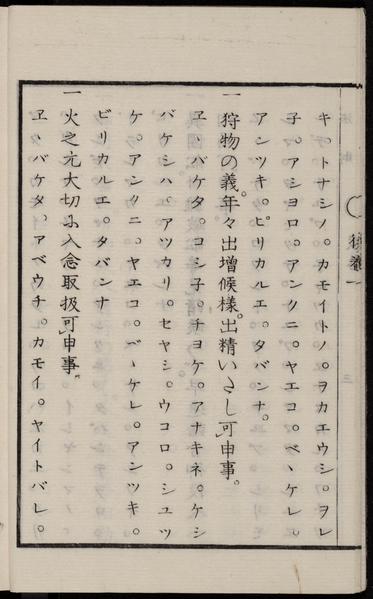 キ、トナシノ。カモイトノ。ヲカエウシ。ヲレ
子。アシヨロ。アンクニ。ヤエコ。ベ、ケレ。
アンツキ。ピリカルエ。タバンナ。
一 狩物の義。年々出増候様。出精いたし可申事。
ヱ、バケタ。コシ子。チヨケ。アナキネ。ケシ
バケシハ。アツカリ。セヤシ。ウコロ。シユツ
ケ。アンクニ。ヤエコ。ベ、ケレ。アンツキ。
ビリカルエ。タバンナ
一 火之元大切に入念取扱可申事。
ヱ、バケタ、アベウチ。カモイ。ヤイトバレ。